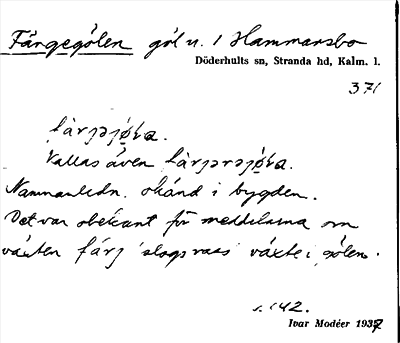 Färgegölen göl u. 1 Hammarsbo
Döderhults sn, Stranda hd, Kalm. l.
371
Kallas även
Namnanledn. okänd i bygden.
Det var obekant för meddelarna om
växten färj 'slags vass' växte i gölen.
s. 142.
Ivar Modéer 1937